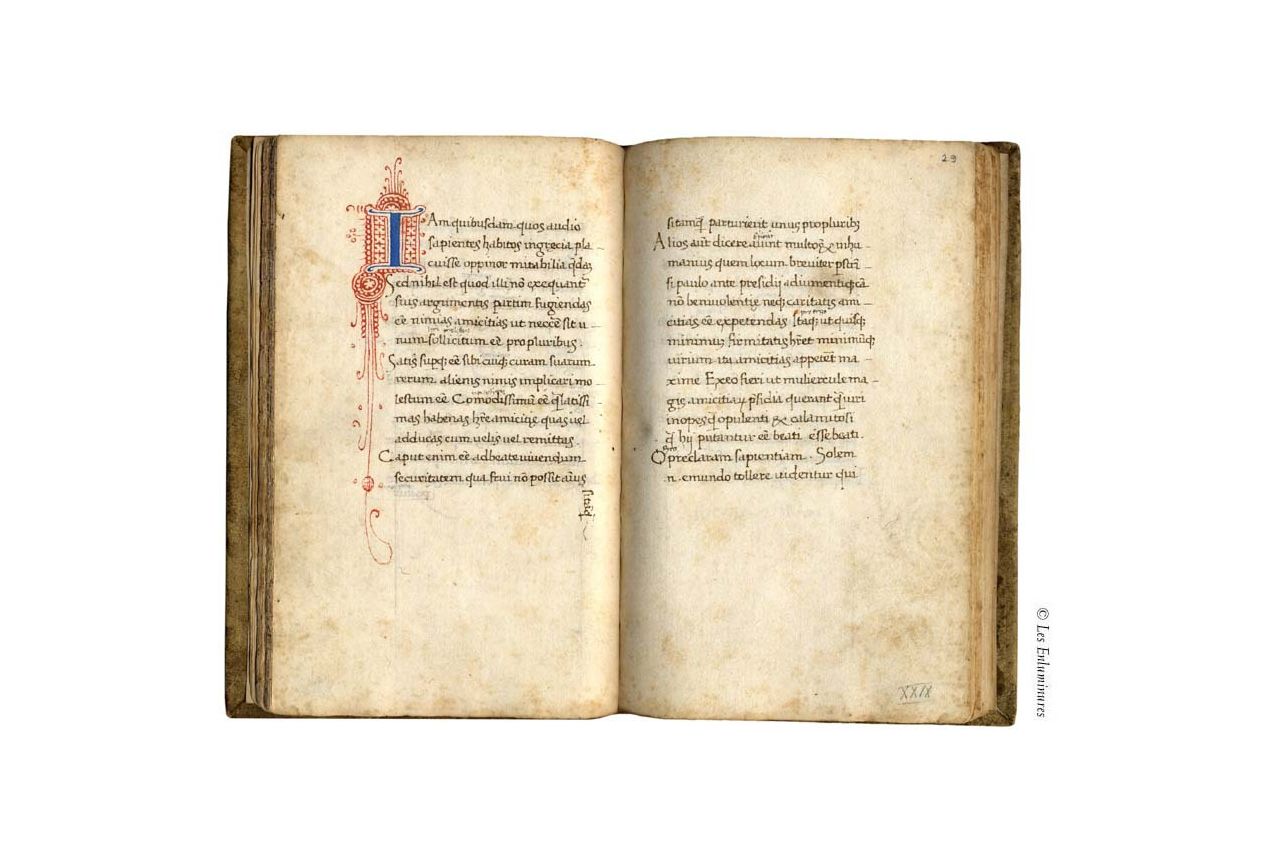 IAm quibusdam quos audio
sapientes habitos ingrecia pla_
cuisse oppinor mirabilia q̄daꝫ
Sed nihil est quod illi nō exequant̄
suis argumentis partim fugiendas
eē nimias amicitias ut necce sit u_
num sollicitum eē pro pluribus.
Satis supqꝫ eē sibi cuiqꝫ curam suarum
rerum. alienis nimis implicari mo_
lestum eē Comodissimū eē q̄ latissi
mas habenas hr̄e amicitie quas uel
adducas cum uelis uel remittas.
Caput enim eē ad beate uiuendum
securitatem qua frui nō possit aīus
29
sitamq̄ parturient unus pro pluribꝫ
Alios aut̄ dicere aiunt multoꝝ & inhu_
manius quem locum breuiter pstrī_
si paulo ante presidij adiumentiqꝫ cā
nō beniuolentie neqꝫ caritatis ami_
citias eē expetendas Itaqꝫ ut quisqꝫ
minimuꝫ firmitatis hr̄et minimūqꝫ
uirium ita amicitias appetert̄ ma_
xime Exeo fieri ut muliercule ma_
gis amicitiaꝝ psidia querant q̄ uiri
inopes q̄ opulenti & calamitosi
q̄ hij putantur eē beati
O preclaram sapientiam. Solem
n. emundo tollere uidentur qui
XXIX
© Les Enluminures